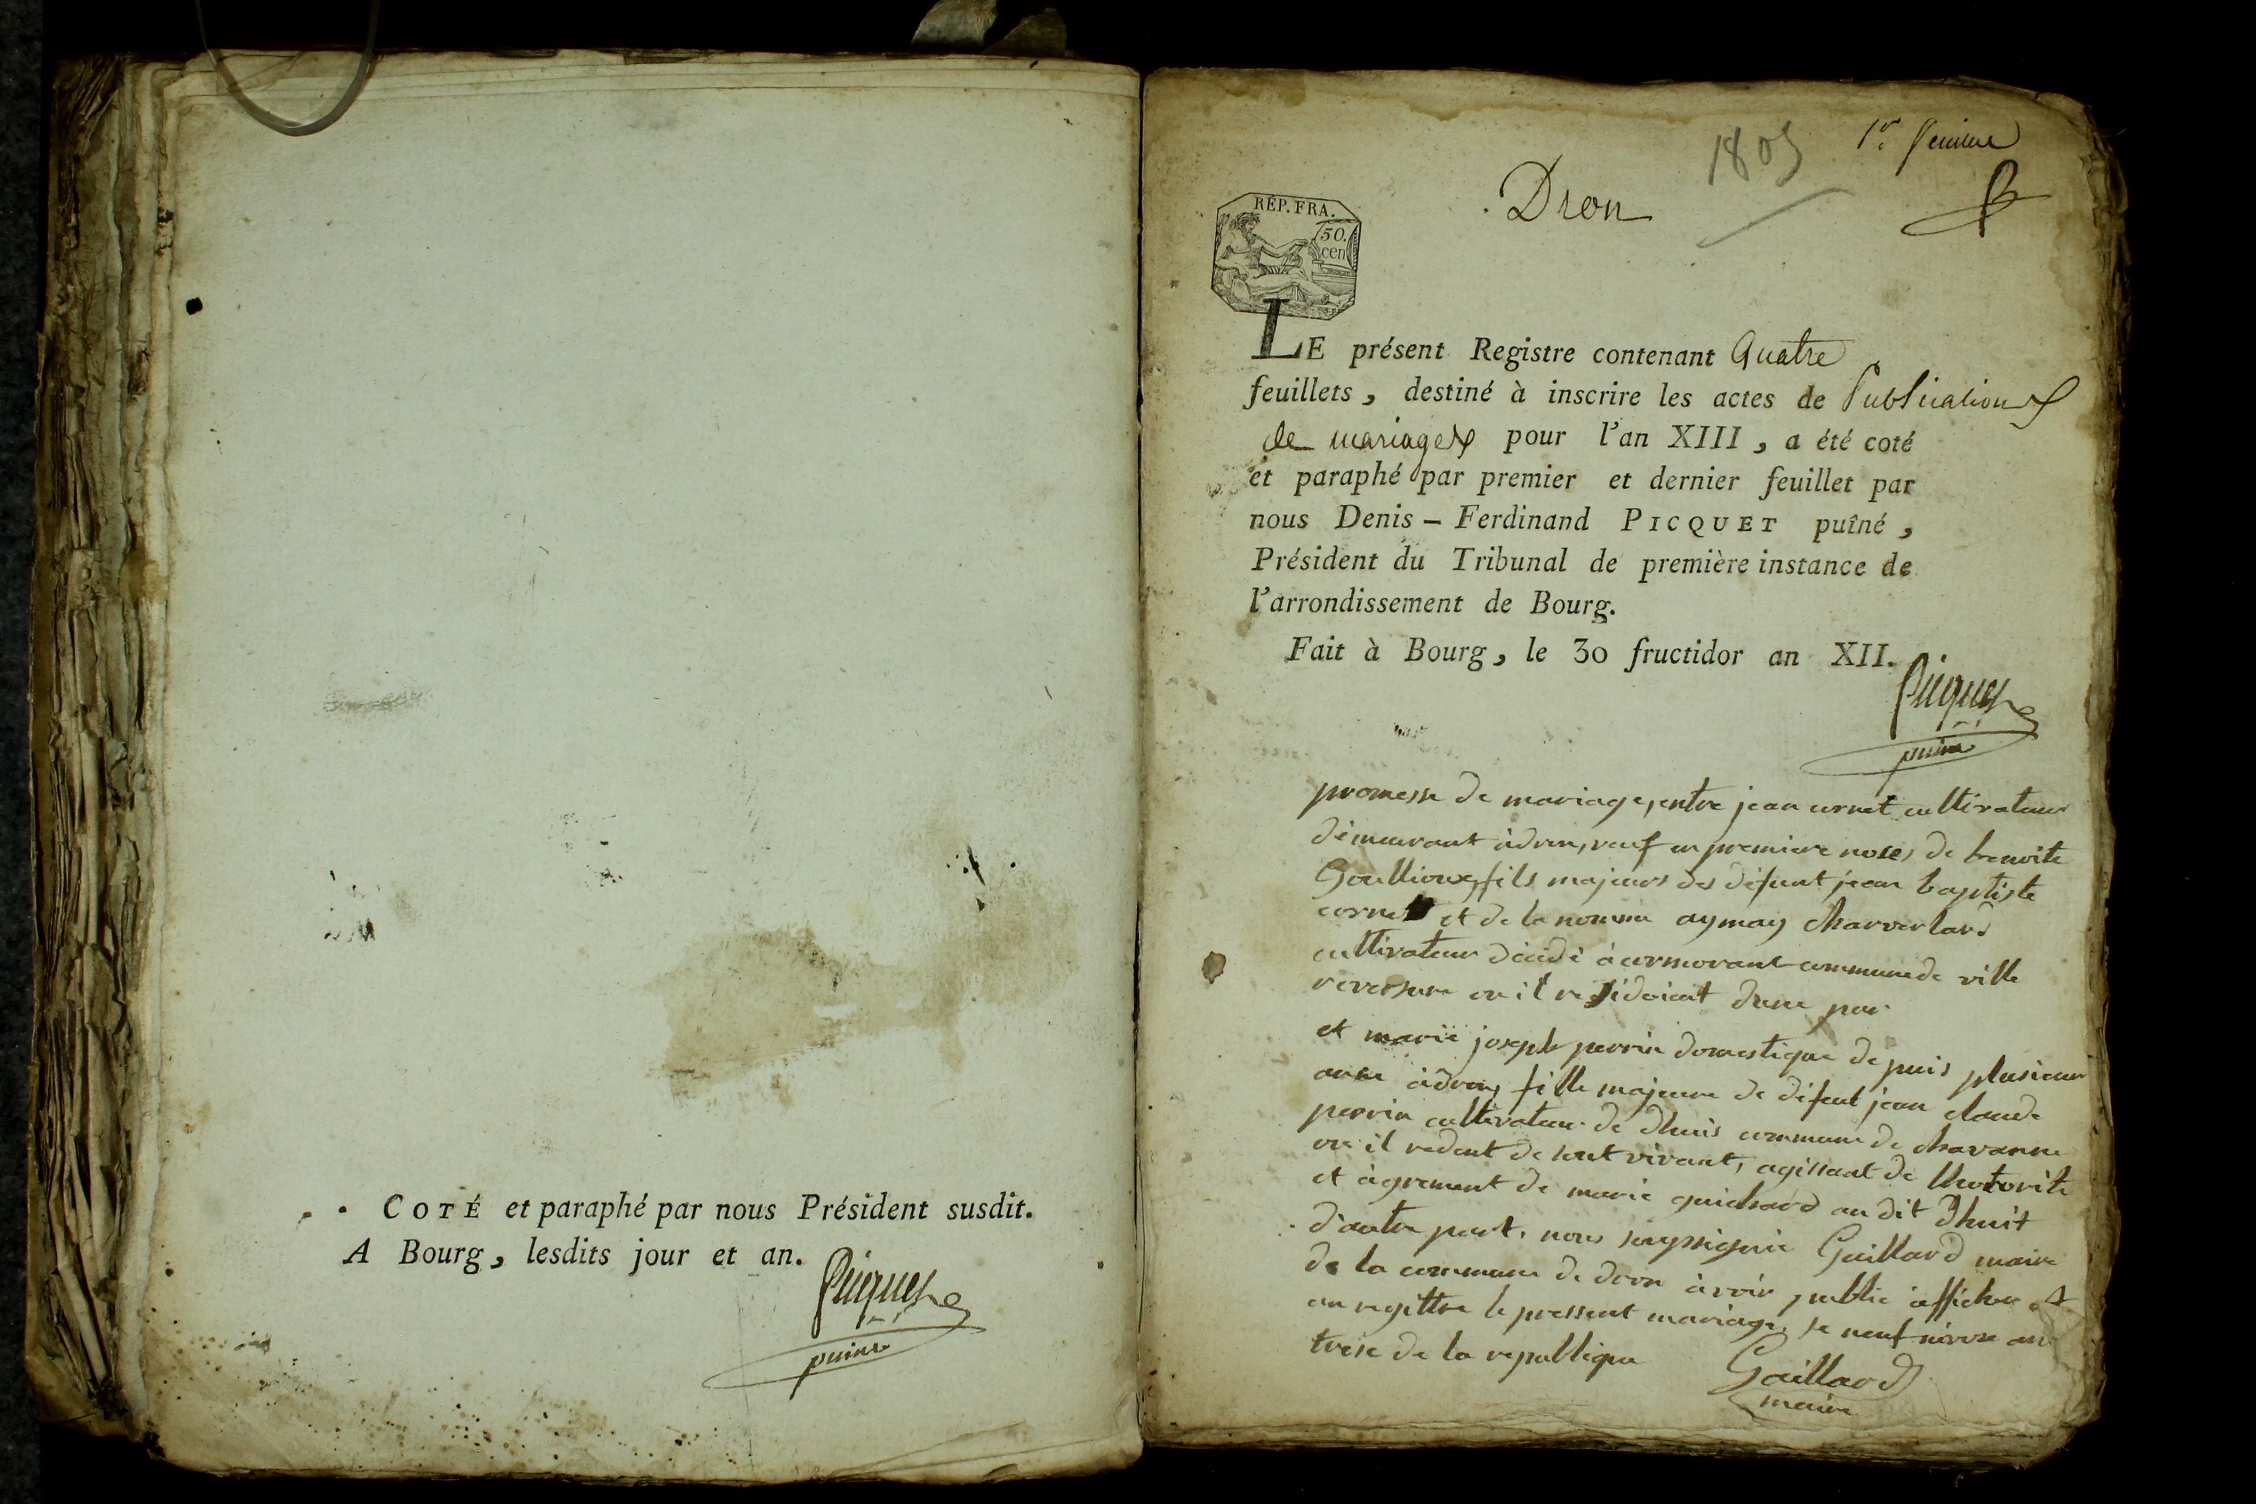 COTÉ et paraphé par nous Président susdit.
A Bourg, lesdits jour et an.
Picquet
puine
1er feuillet
1805
Dron
RÉP. FRA.
50.
cen
LE présent Registre contenant Quatre
feuillets, destiné à inscrire les actes de Publications
de mariages pour l'an XIII, a été coté
et paraphé par premier et dernier feuillet par
nous Denis - Ferdinand PICQUET puîné,
Président du Tribunal de première instance de
l'arrondissement de Bourg.
Fait à Bourg, le 30 fructidor an XII.
Picquet
puine
promesse de mariage, entre jean cornet cultivateur
demeurant à dron, veuf en premiere noses de benoite
Goullioux, fils majeurs des défunt jean baptiste
cornet et de la nomme aymay Charverlard
cultivateur décédé à cormorant commune de ville
reversure ou il residoient dune par
et marie joseph perrin domestique depuis plusieur
anne àdron, fille majeure de défent jean claude
perrin cultivateur de dhuis commune de chavanne
ou il redent de sont vivant, agissant de lhotorite
et àgrement de marie guichard au dit dhuit
d'autre part. nous soussignie Gaillard maire
de la commune de dron àvoir public àfficher et
enregittre le pressent mariage. le neuf nivose an
treise de la republique
Gaillard
maire